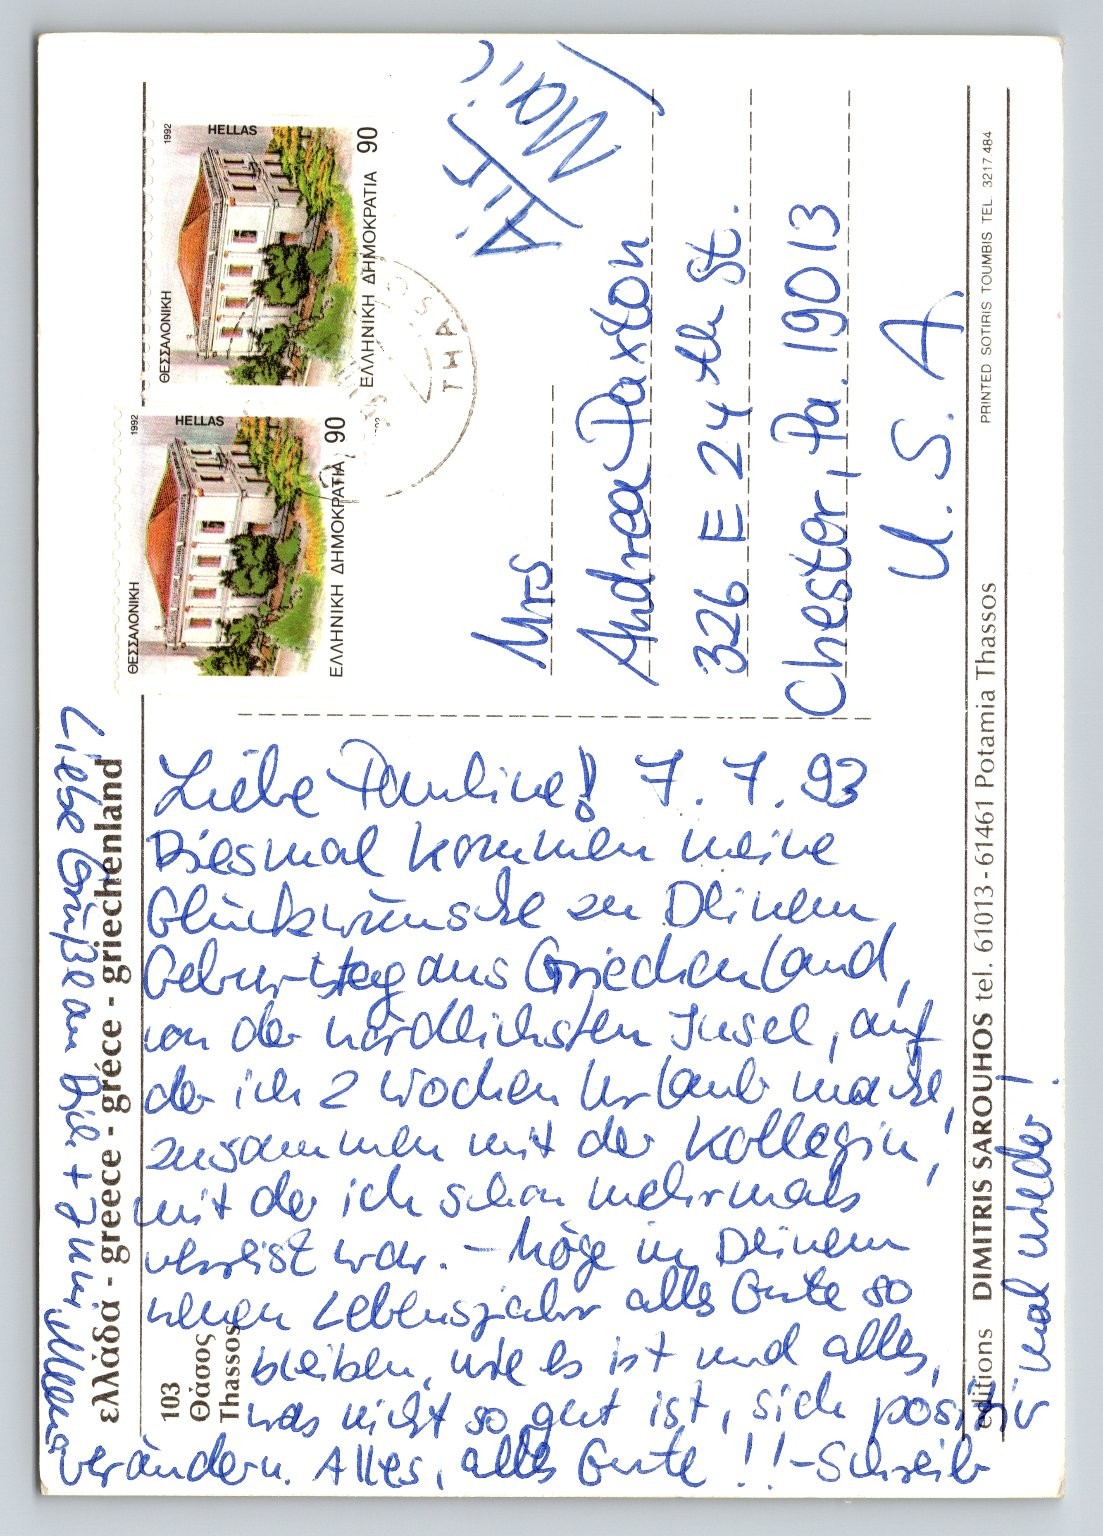 ελλάδα - greece - gréce - griechenland
103
Θάσος
Thassos
Liebe Pauline! 7. 7. 93
Diesmal kommen meine
Glückwünsche zu Deinem
Geburtstag aus Griechenland,
von der nördlichsten Insel, auf
der ich 2 Wochen Urlaub mache,
zusammen mit der Kollegin,
mit der ich schon mehrmals
verreist war. – Möge in Deinem
neuen Lebensjahr alles Gute so
bleiben, wie es ist und alles,
was nicht so gut ist, sich positiv
verändern. Alles, alles Gute!! – Schreib
mal wieder!
Liebe Grüße an Dich + Jim,
HELLAS
1992
ΘΕΣΣΑΛΟΝΙΚΗ
ΕΛΛΗΝΙΚΗ ΔΗΜΟΚΡΑΤΙΑ 90
HELLAS
1992
ΘΕΣΣΑΛΟΝΙΚΗ
ΕΛΛΗΝΙΚΗ ΔΗΜΟΚΡΑΤΙΑ 90
THA OS
Air
Mail
Mrs
Andrea Paxton
326 E 24 th St.
Chester, Pa. 19013
U. S. A
editions DIMITRIS SAROUHOS tel. 61013 - 61461 Potamia Thassos
PRINTED SOTIRIS TOUMBIS TEL. 3217 484